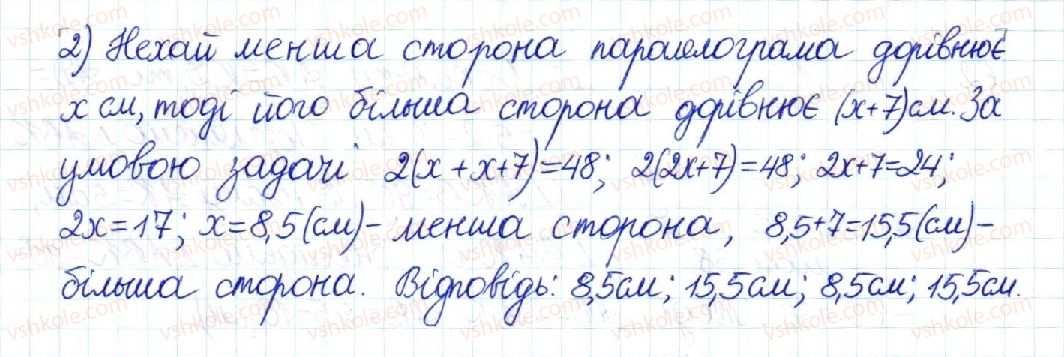 2) Нехай менша сторона паралелограма дорівнює
x см, тоді його більша сторона дорівнює (x+7)см. За
умовою задачі 2(x+x+7)=48; 2(2x+7)=48; 2x+7=24;
2x=17; x=8,5(см)– менша сторона, 8,5+7=15,5(см)–
більша сторона. Відповідь: 8,5см; 15,5см; 8,5см; 15,5см.